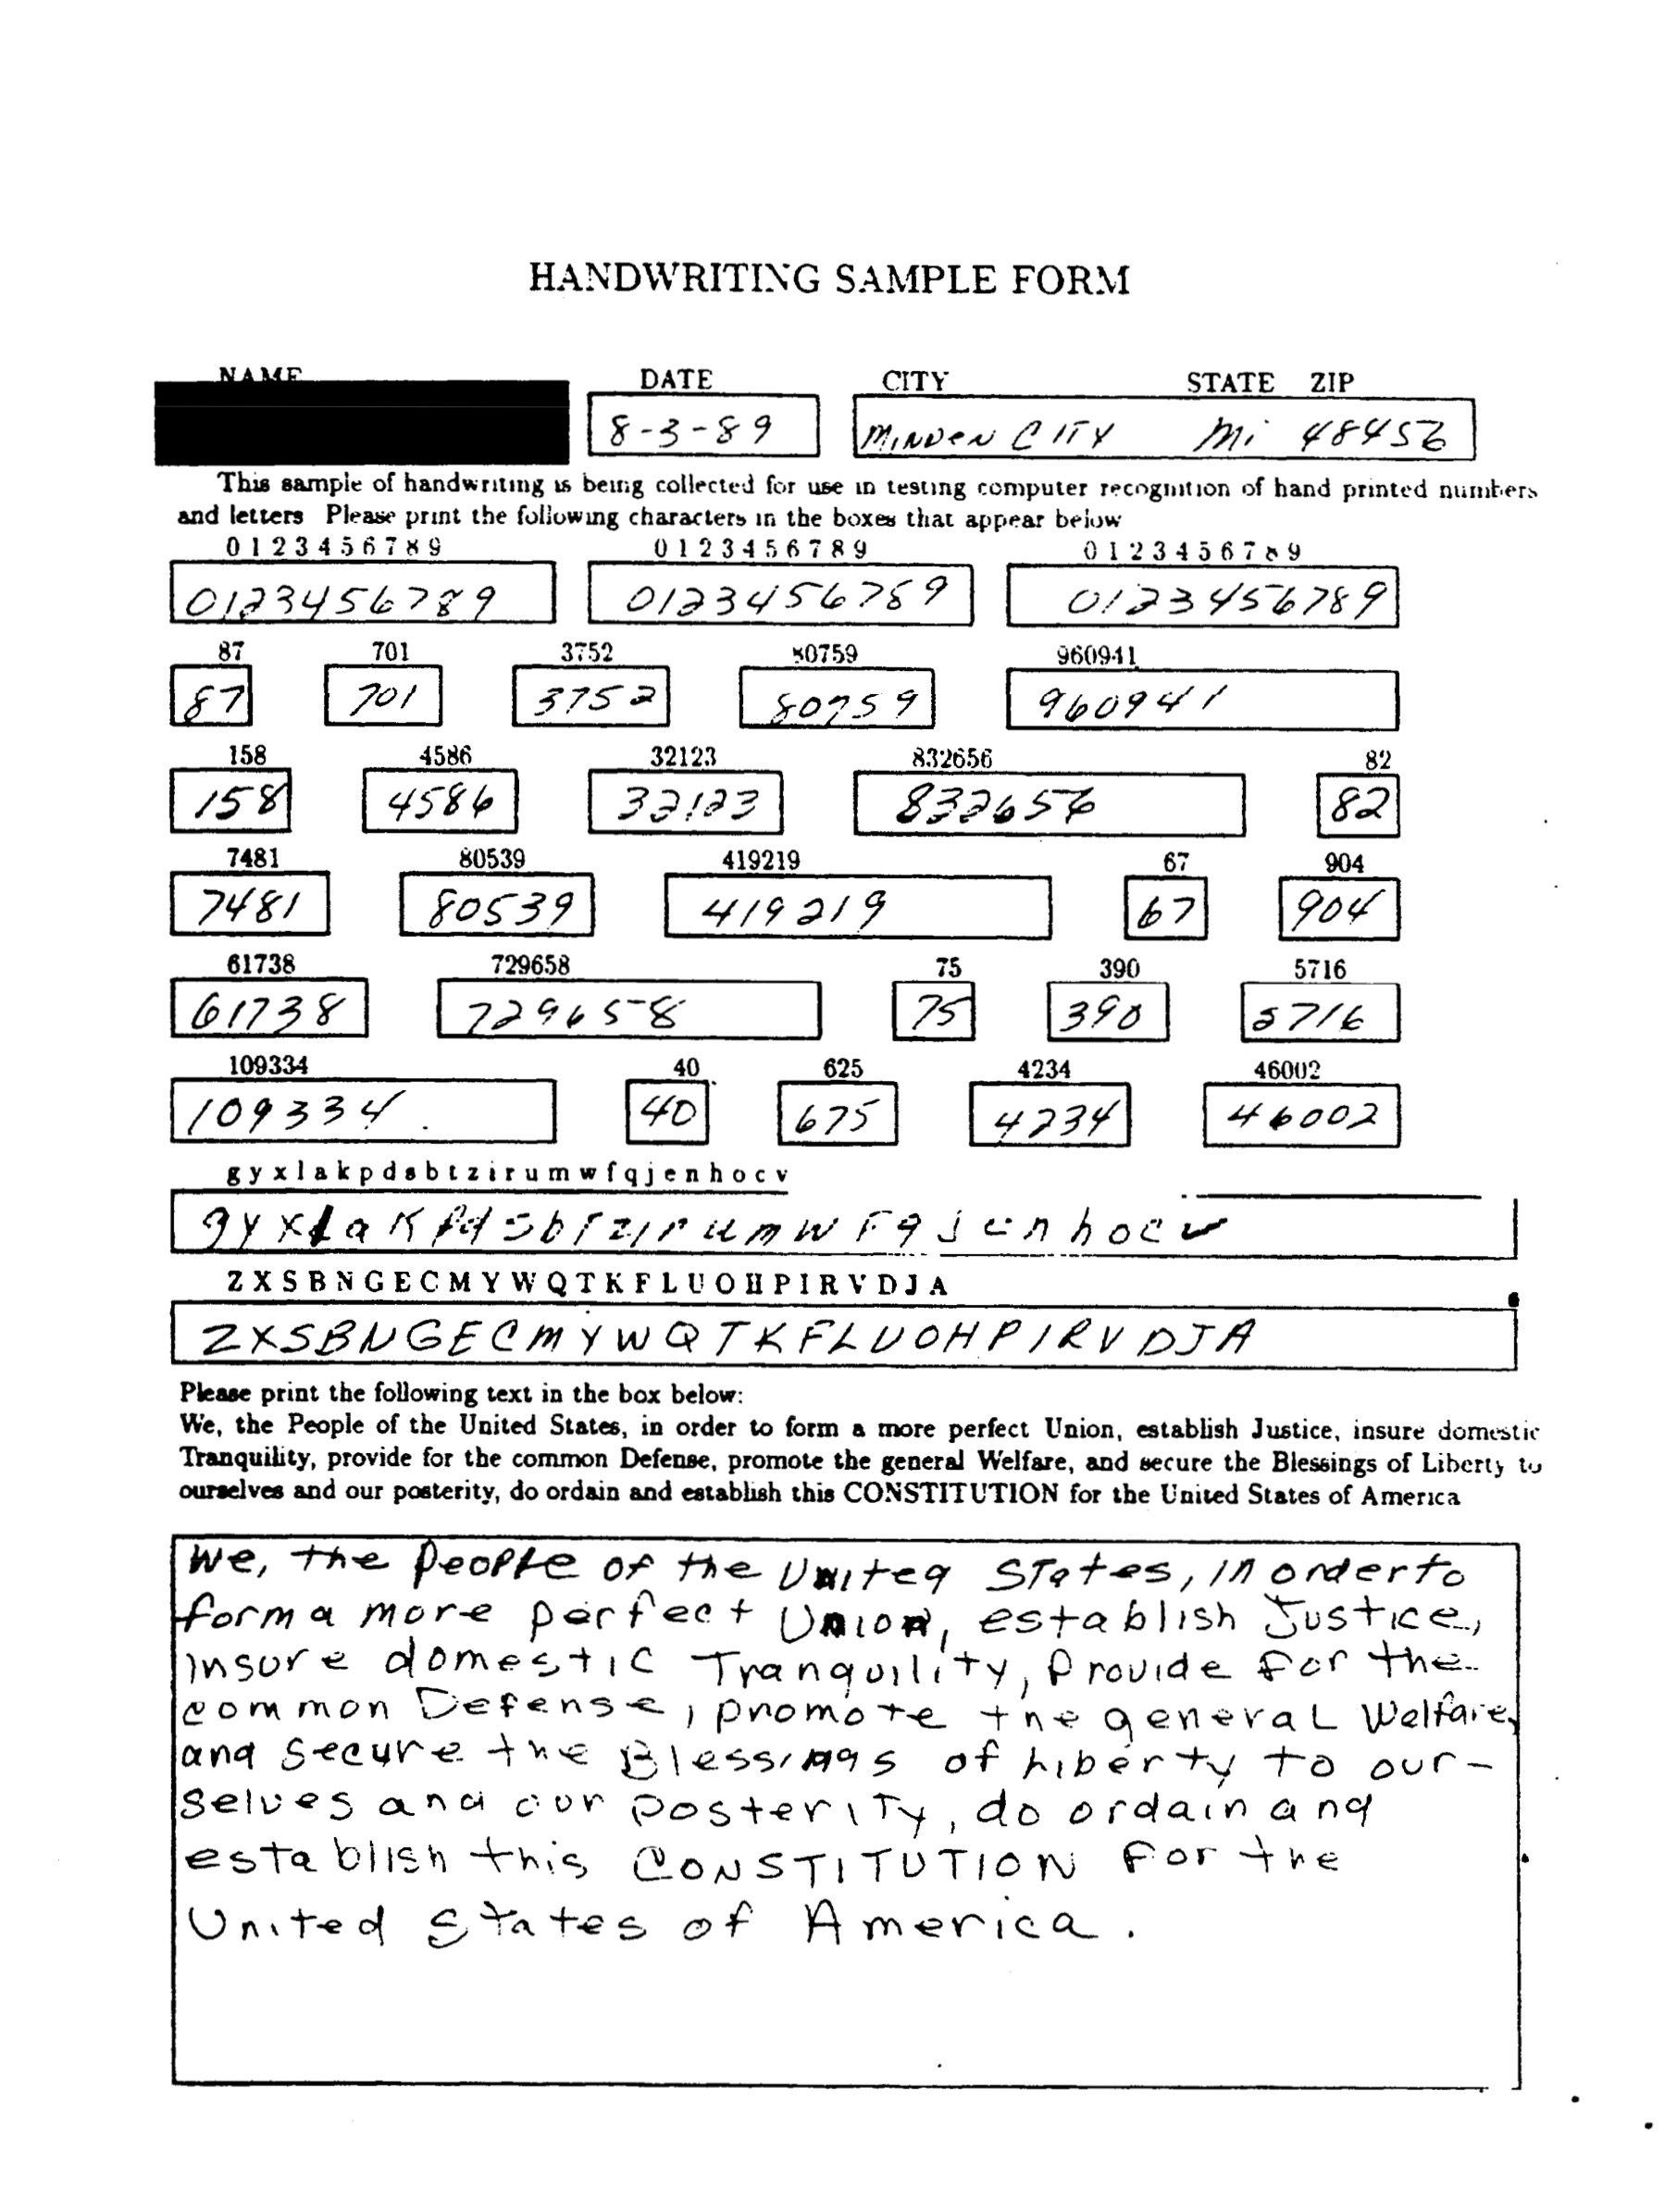 HANDWRITING SAMPLE FORM
NAME DATE CITY STATE ZIP
8-3-89 MINDEN CITY Mi 48456
This sample of handwriting is being collected for use in testing computer recognition of hand printed numbers
and letters Please print the following characters in the boxes that appear below
0 1 2 3 4 5 6 7 8 9 0 1 2 3 4 5 6 7 8 9 0 1 2 3 4 5 6 7 8 9
0123456789 0123456789 0123456789
87 701 3752 80759 960941
87 701 3752 80759 960941
158 4586 32123 832656 82
158 4586 32123 832656 82
7481 80539 419219 67 904
7481 80539 419219 67 904
61738 729658 75 390 5716
61738 729658 75 390 5716
109334 40 625 4234 46002
109334 40 675 4234 46002
g y x l a k p d s b t z i r u m w f q j e n h o c v
g y x l a K p d s b t z i r u m w F q j e n h o c v
Z X S B N G E C M Y W Q T K F L U O H P I R V D J A
Z X S B N G E C M Y W Q T K F L U O H P I R V D J A
Please print the following text in the box below:
We, the People of the United States, in order to form a more perfect Union, establish Justice, insure domestic
Tranquility, provide for the common Defense, promote the general Welfare, and secure the Blessings of Liberty to
ourselves and our posterity, do ordain and establish this CONSTITUTION for the United States of America
We, the People of the United States, in order to
form a more perfect Union, establish Justice,
insure domestic Tranquility, Provide For the
common Defense, promote the general Welfare,
and secure the Blessings of Liberty to our-
selves and our posterity, do ordain and
establish this CONSTITUTION For the
United States of America.